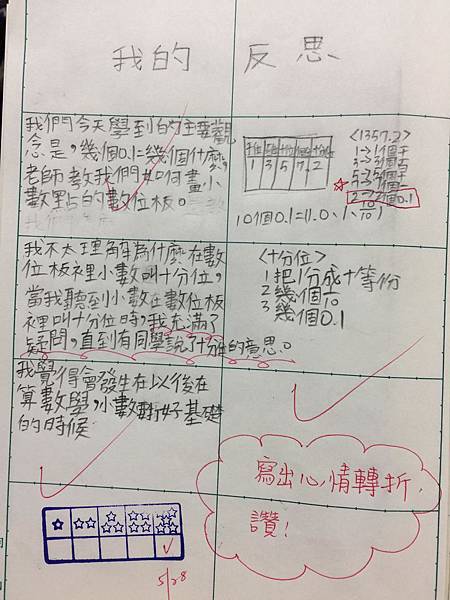 我的 反思
我們今天學到的主要觀
念是，幾個0.1=幾個什麼，
老師教我們如何畫小
數點的數位板。
千位 百位 十位 個位 十分位
1 3 5 7 2
<1357.2>
1→1個千
3→3個百
5→5個十
7→7個一
2→2個0.1
10個0.1=1.0、1、
我不太理解為什麼在數
位板裡小數叫十分位，
當我聽到小數在數位板
裡叫十分位時，我充滿了
疑問，直到有同學說了十分位的意思。
<十分位>
1 把1分成十等份
2 幾個1/10
3 幾個0.1
我覺得會發生在以後在
算數學，小數打好基礎
的時候
寫出心情轉折，
讚！
5/28